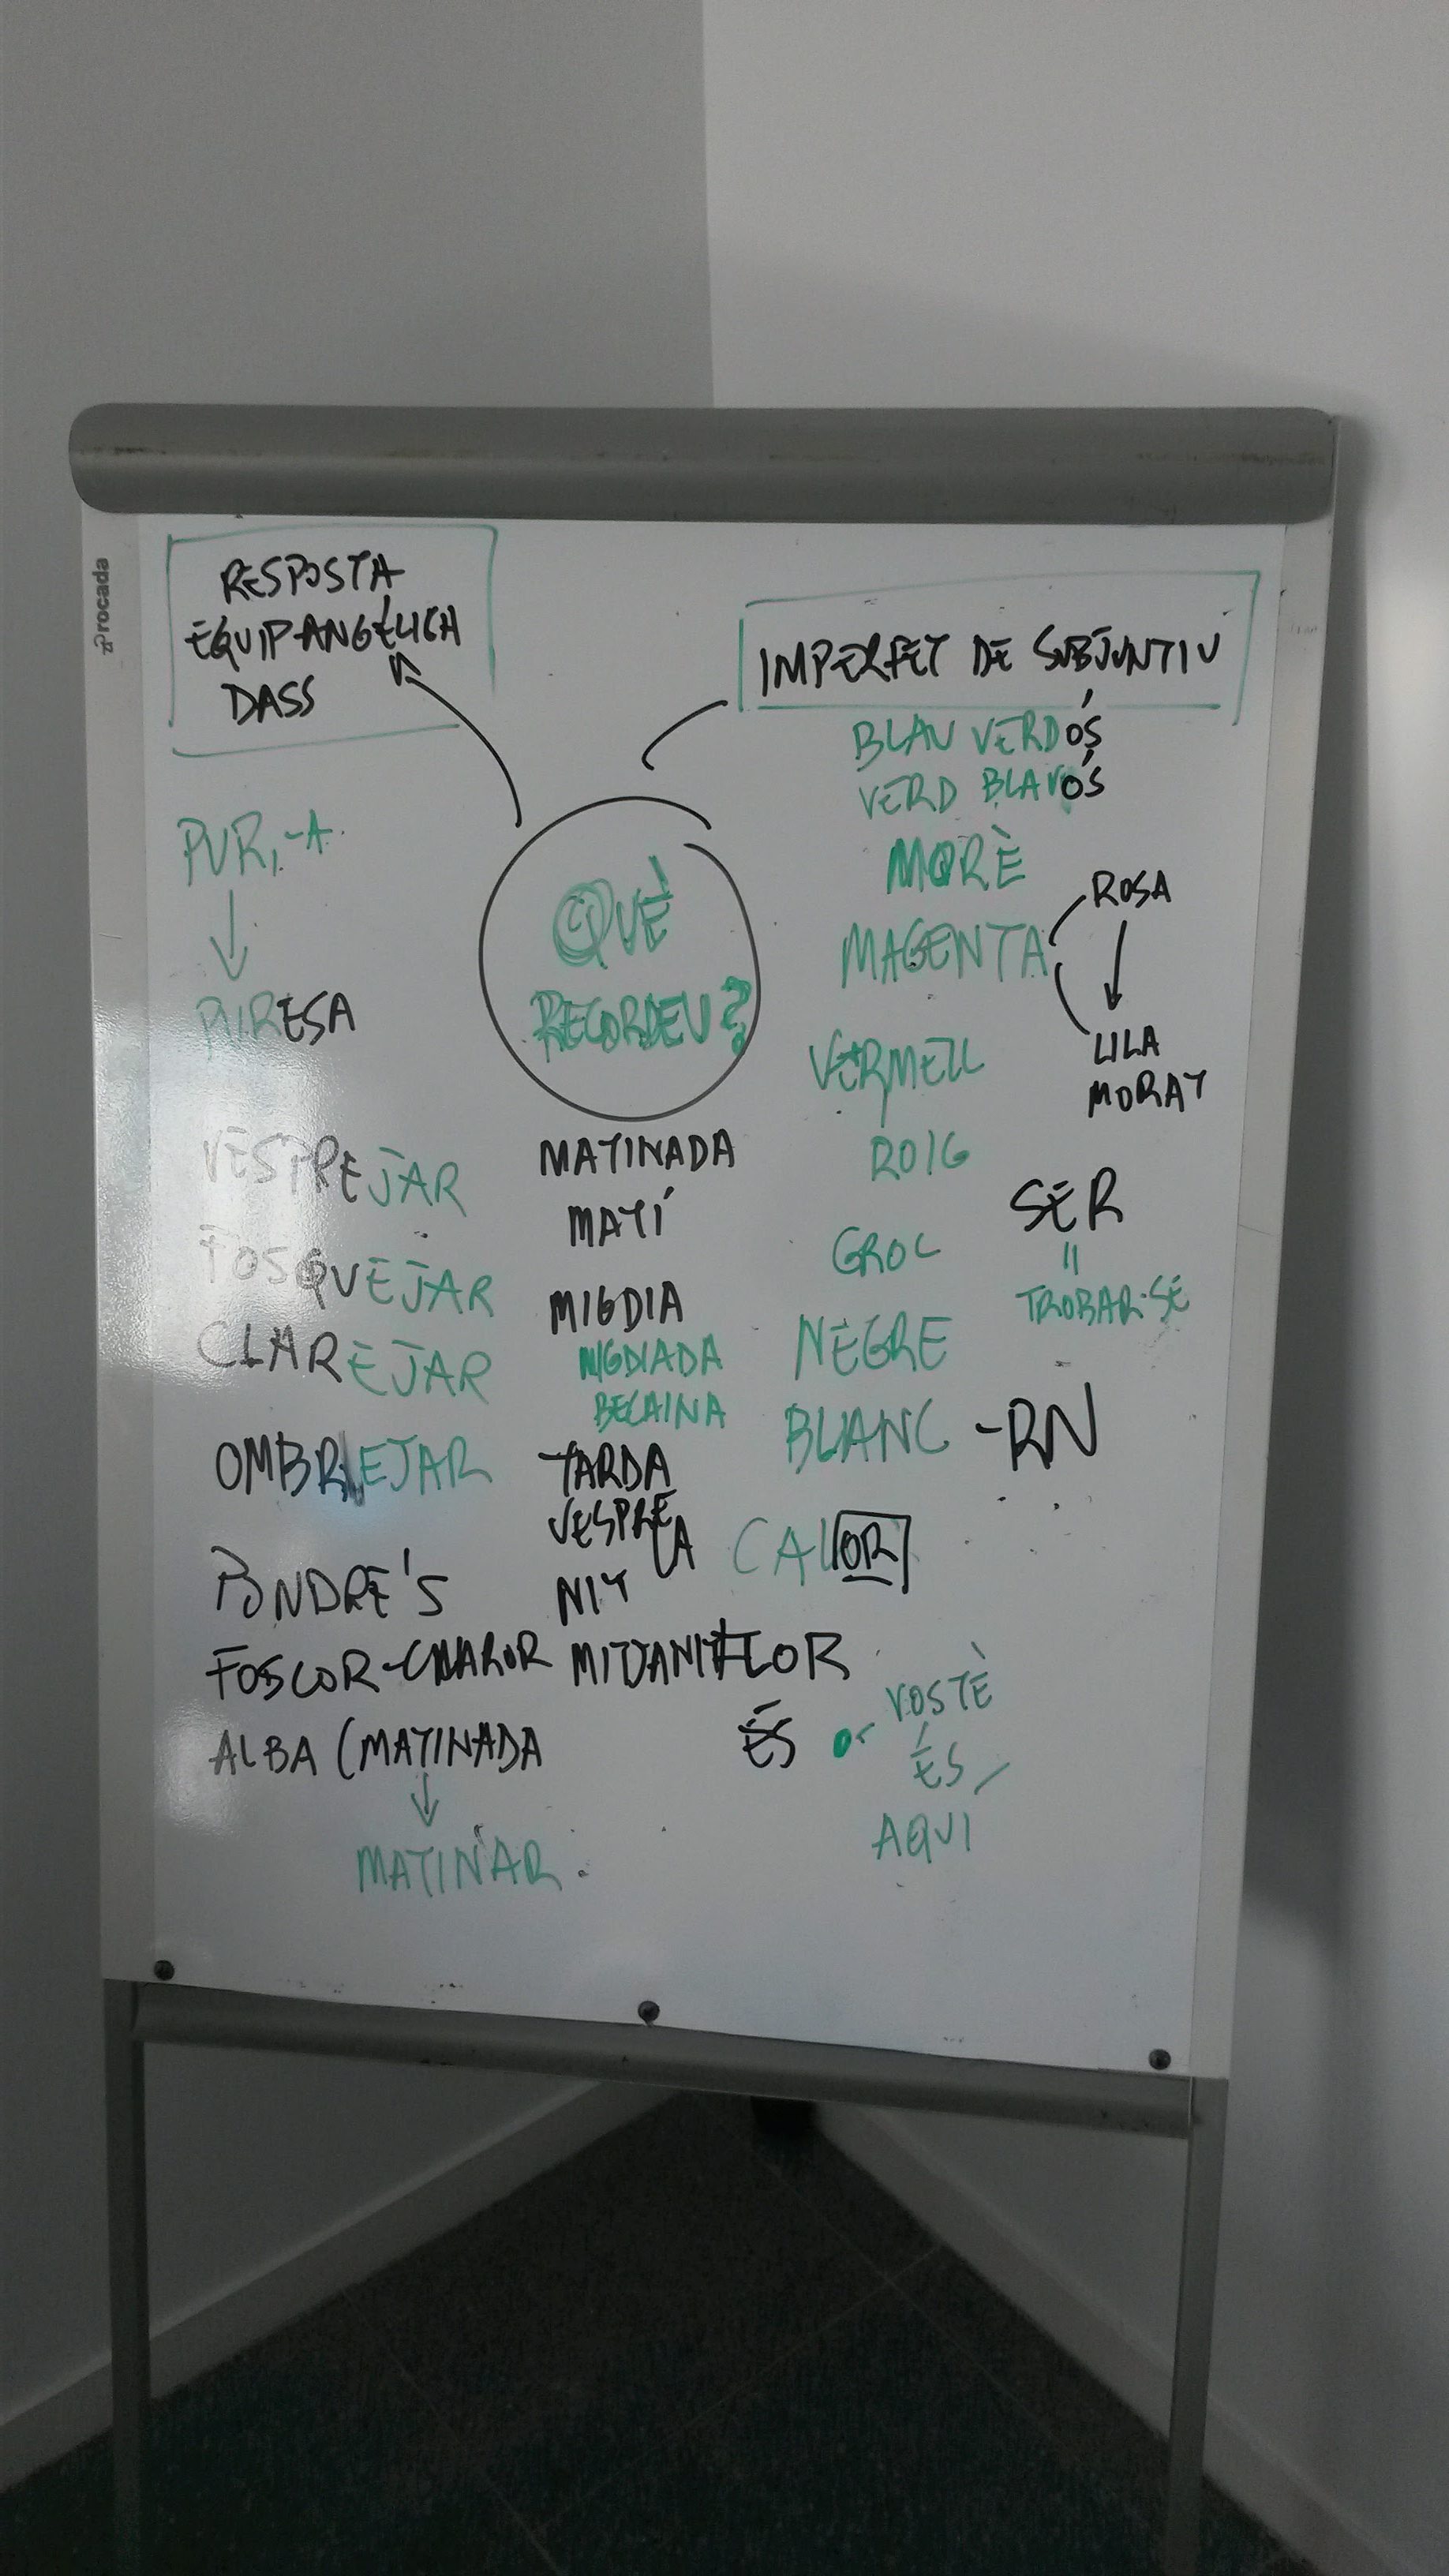 rocada
RESPOSTA
EQUIP ANGÈLICA
DASS
IMPERFET DE SUBJUNTIU
BLAU VERDÓS
VERD BLAVÓS
PUR, -A
↓
PURESA
QUÈ
RECORDEU?
MORÈ
MAGENTA
ROSA
↓
LILA
MORAT
VERMELL
ROIG
GROC
NEGRE
BLANC -RN
SER
=
TROBAR-SE
VESPREJAR
FOSQUEJAR
CLAREJAR
OMBREJAR
PONDRE'S
FOSCOR-CLAROR
ALBA (MATINADA
↓
MATINAR
MATINADA
MATÍ
MIGDIA
MIGDIADA
BECAINA
TARDA
VESPRE
LA
NIT
MITJANIT
CALOR
FLOR
ÉS
VOSTÈ
ÉS
AQUI